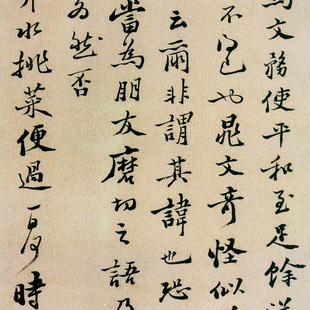 文務使平和至足餘
不得已也晁文奇怪似
云爾非謂其諱也恐
當為朋友磨切之語乃
為然否
水挑菜便過一時